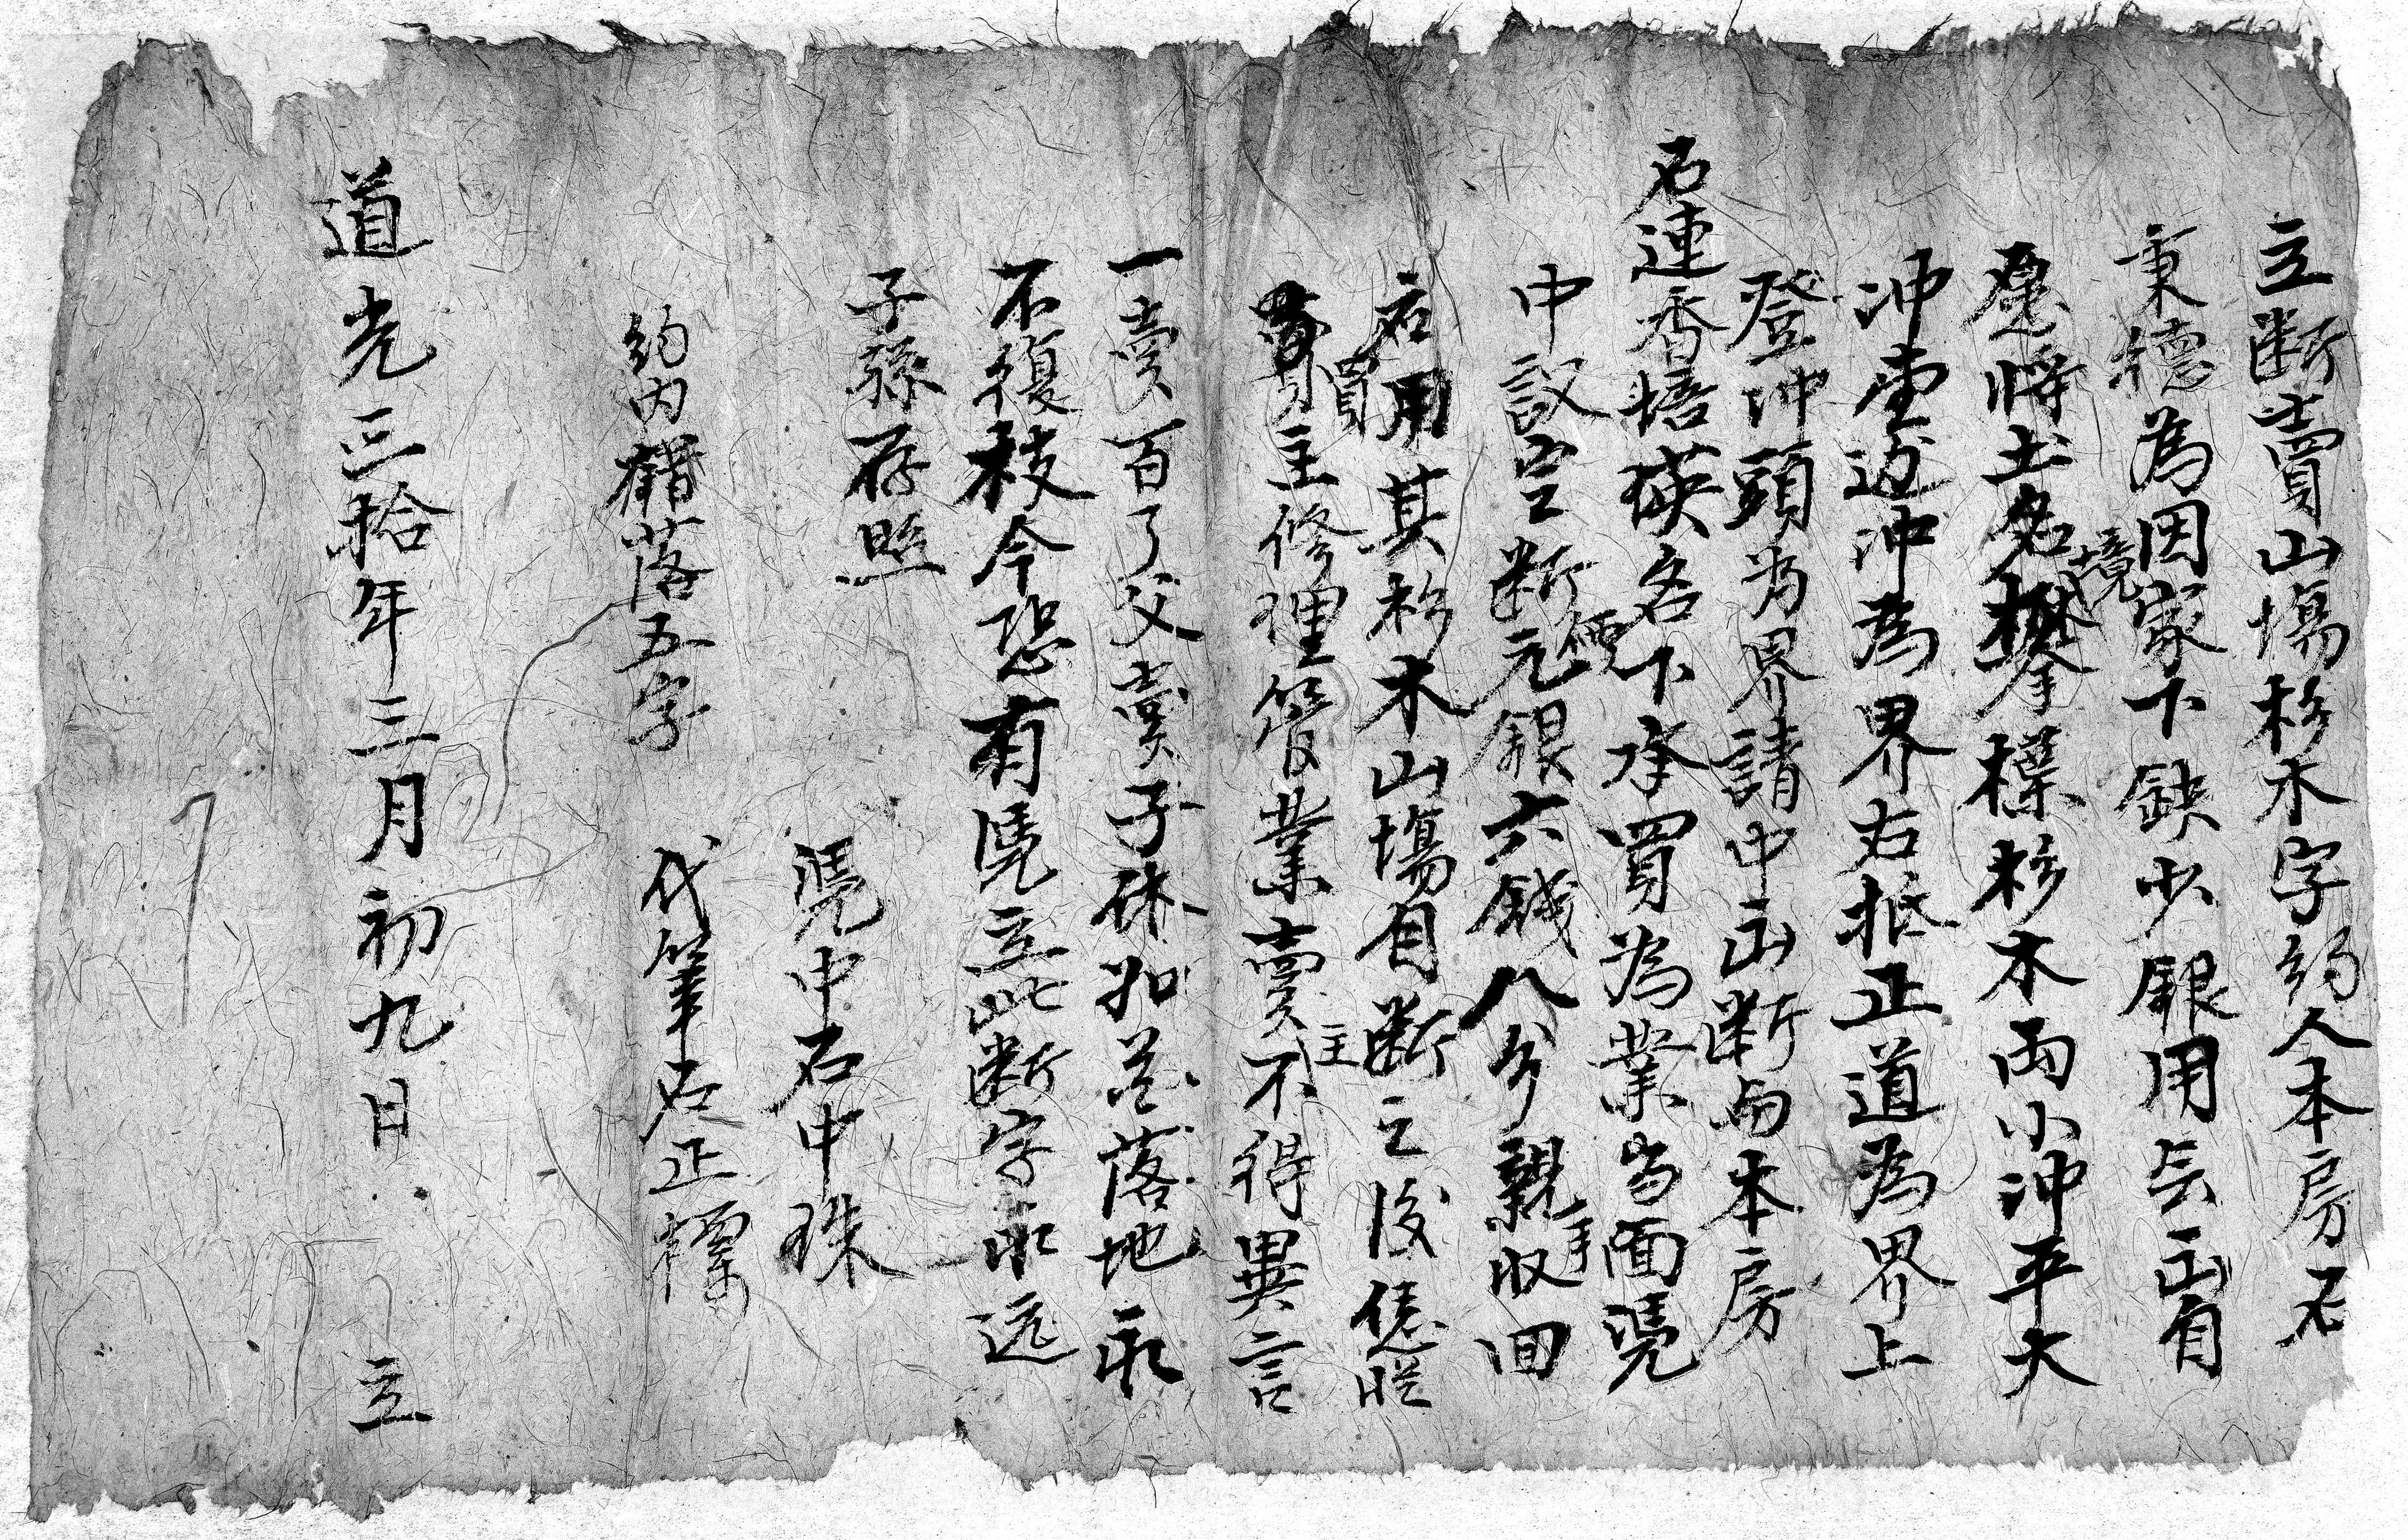 立断賣山塲杉木字約人本房石
秉德為因家下缺少銀用無出自
愿將土名攀標境杉木両小冲平大
冲壹边冲為界右抵正道為界上
登冲頭为界請中出断与本房
石連香培瑛名下承買為業当面凴
中議定断價元銀六錢八分親手収回
应用其杉木山塲自断之後凭從
買主修理管業賣主不得異言
一賣百了父賣子休如花落地永
不復枝今恐有凴立此断字永远
子孫存照
凴中石中珠
約内䤸落五字
代筆石正
道光三拾年三月初九日 立